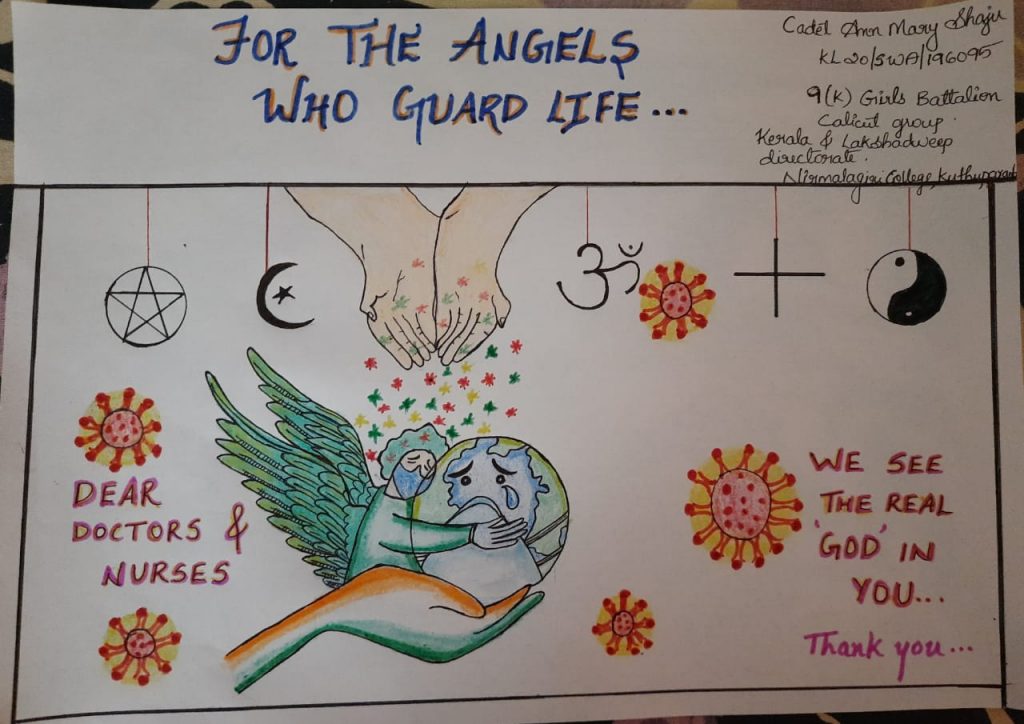 FOR THE ANGELS
WHO GUARD LIFE...
Cadet Ann Mary Shaju
KL20/SWA/196095
9(K) Girls Battalion
Calicut group.
Kerala & Lakshadweep
directorate.
Nirmalagiri College, Kuthuparamba
DEAR
DOCTORS &
NURSES
WE SEE
THE REAL
'GOD' IN
YOU...
Thank you...